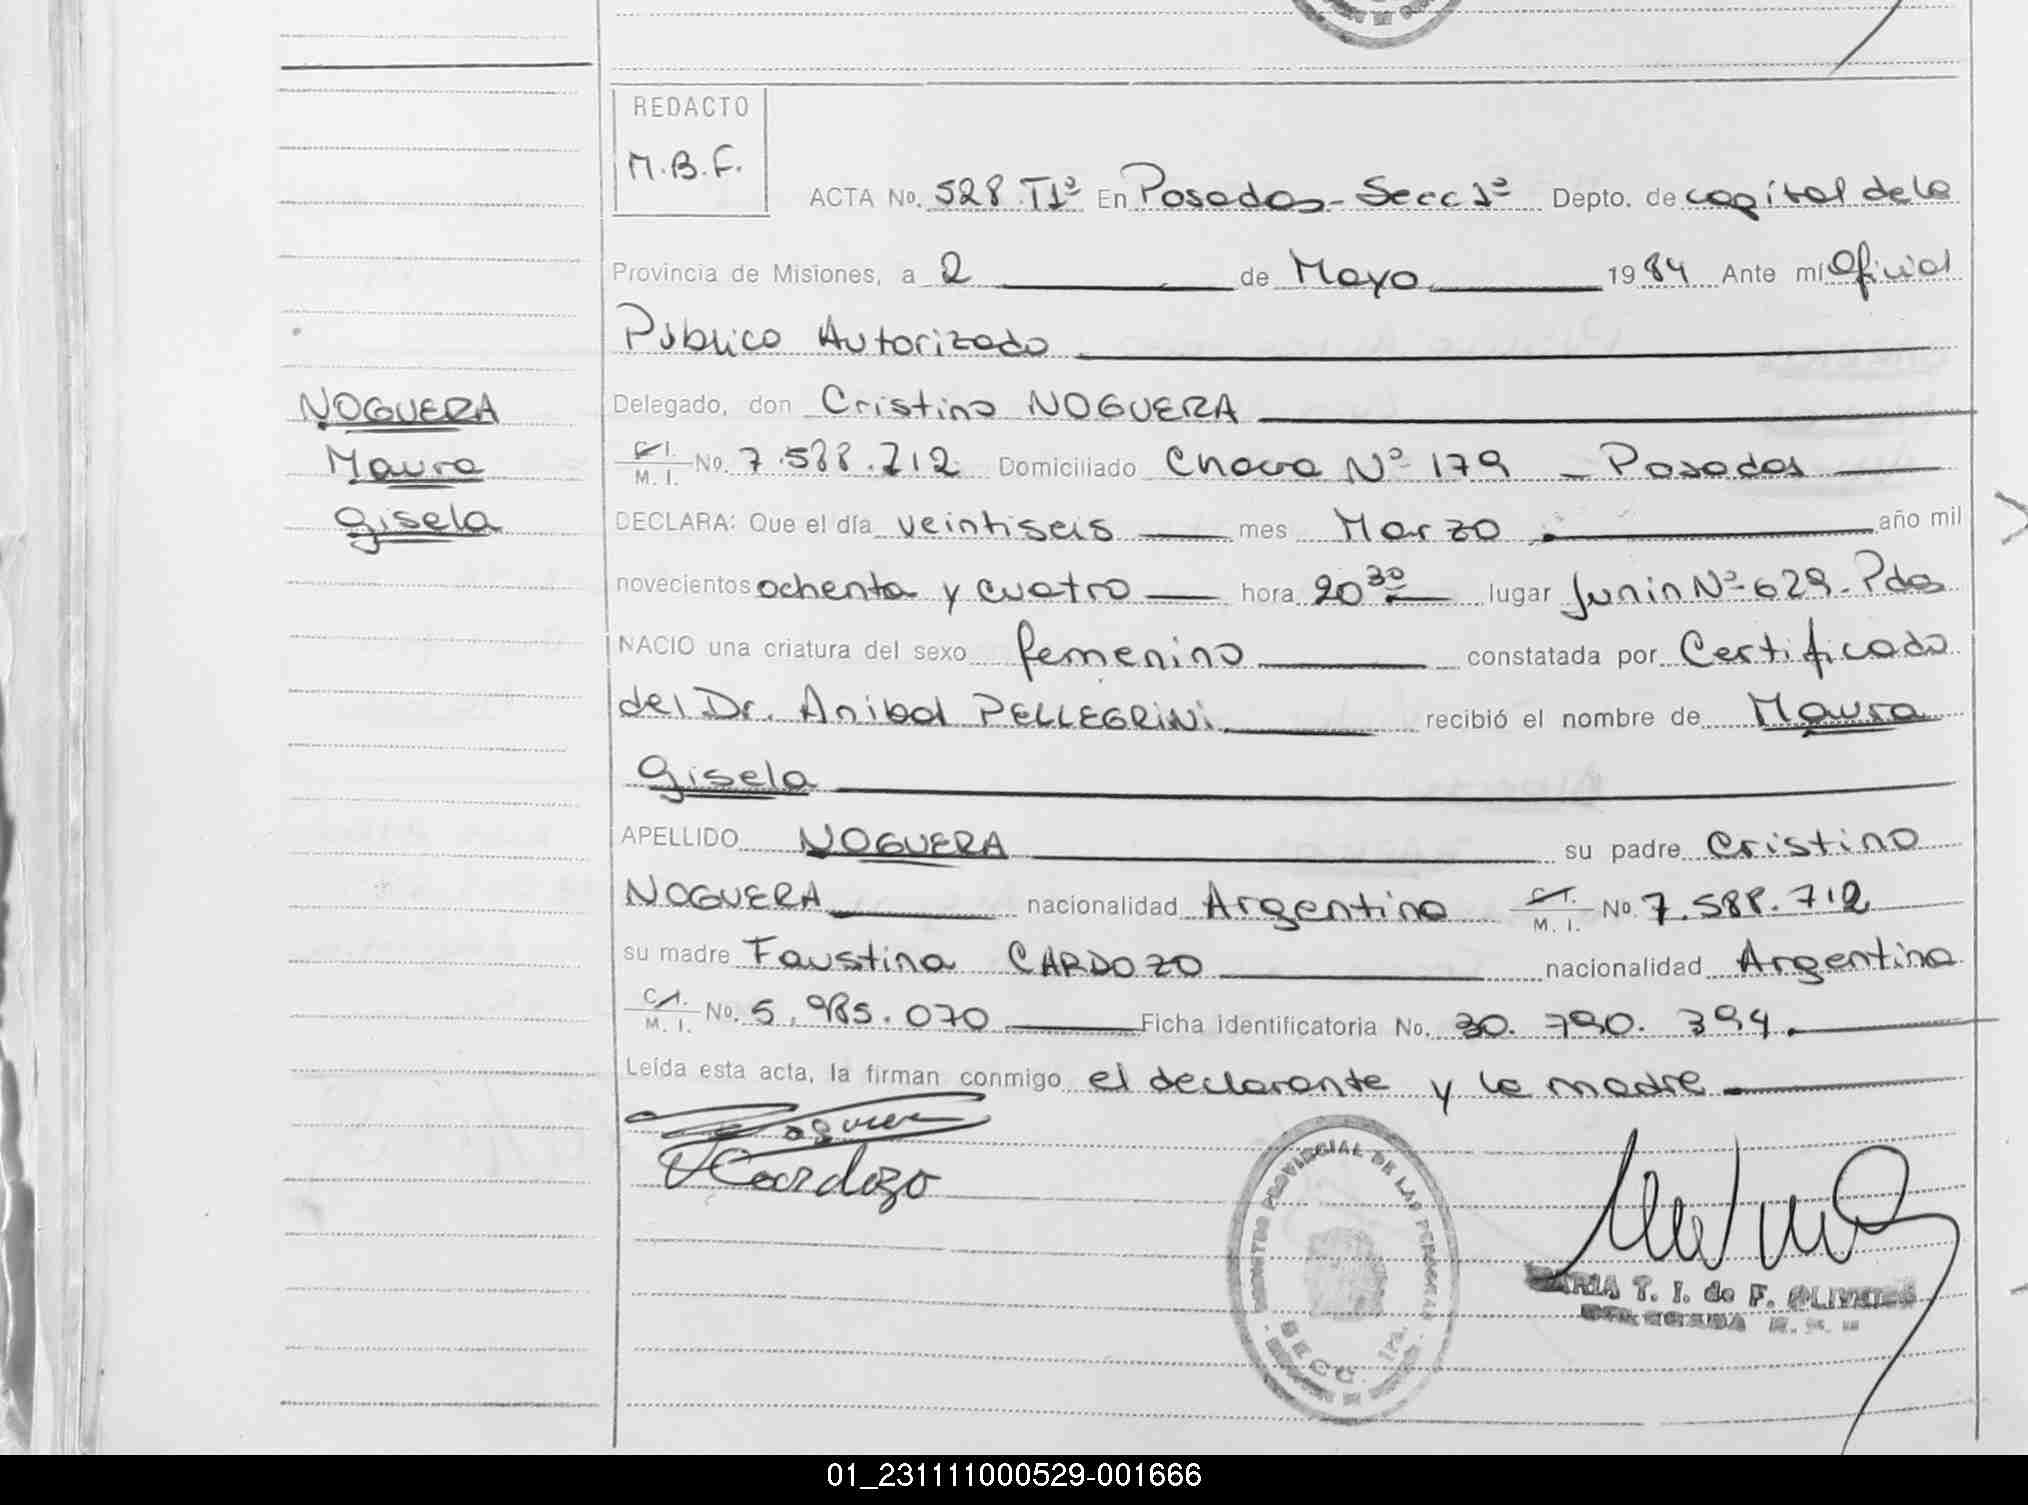 REDACTO
M.B.F.
ACTA No. 528 T1º En Posadas - Secc 1ª Depto. de capital de la
Provincia de Misiones, a 2 de Mayo 1984 Ante mí Oficial
Público Autorizado
Delegado, don Cristino NOGUERA
NOGUERA
Maura
Gisela
C.I. M. I. No. 7.588.712 Domiciliado Chacra Nº 179 - Posadas
DECLARA: Que el día veintiseis mes Marzo año mil
novecientos ochenta y cuatro hora 20 30 lugar Junin Nº 629 - Pdas
NACIO una criatura del sexo femenino constatada por Certificado
del Dr. Anibal PELLEGRINI recibió el nombre de Maura
Gisela
APELLIDO NOGUERA su padre Cristino
NOGUERA nacionalidad Argentino C.I. M. I. No. 7.588.712
su madre Faustina CARDOZO nacionalidad Argentina
C.I. M. I. No. 5.985.070 Ficha identificatoria No. 30.790.394.
Leída esta acta, la firman conmigo el declarante y la madre
Cardozo
PROVINCIAL DE LAS PERSONAS
SECC. 1ra.
MARIA T. I. de F. OLIVERA
01_231111000529-001666